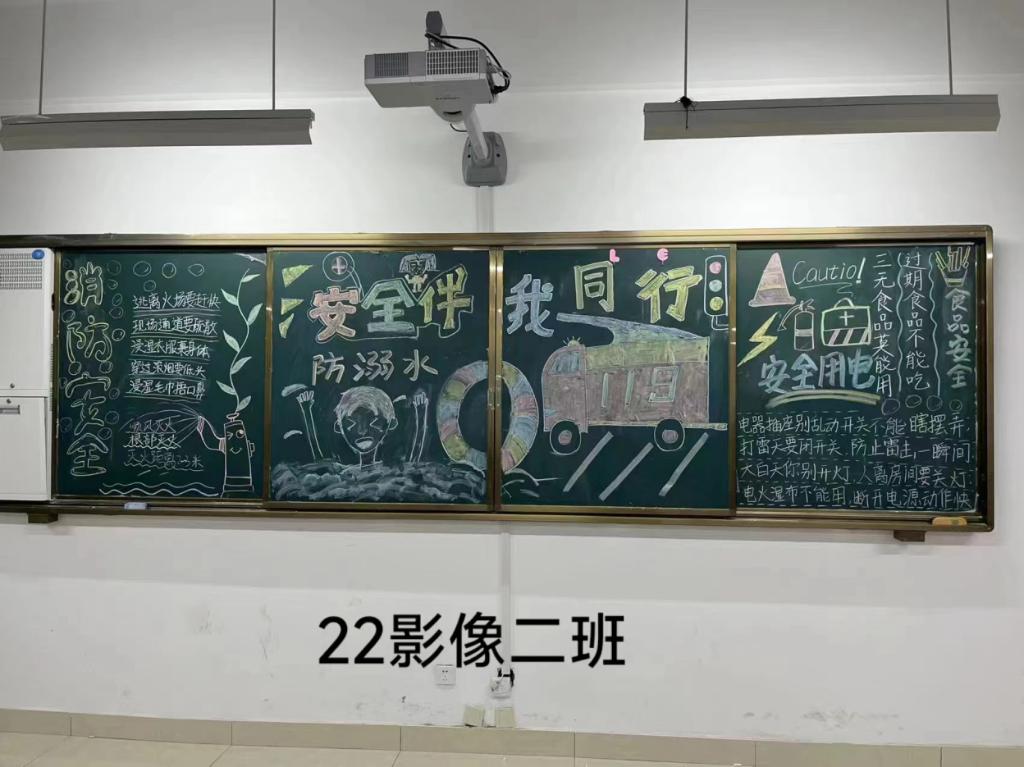 消防安全
逃离火场要赶快
现场通道要疏散
浸湿衣服裹身体
穿过浓烟要低头
浸湿毛巾捂口鼻
顺风灭火
根部灭火
安全伴我同行
防溺水
119
Cautio!
安全用电
三无食品莫能用
过期食品不能吃
食品安全
电器插座别乱动开关不能瞎摆弄
打雷天要闭开关 防止雷击一瞬间
大白天你别开灯 人离房间要关灯
电火湿布不能用 断开电源动作快
22影像二班